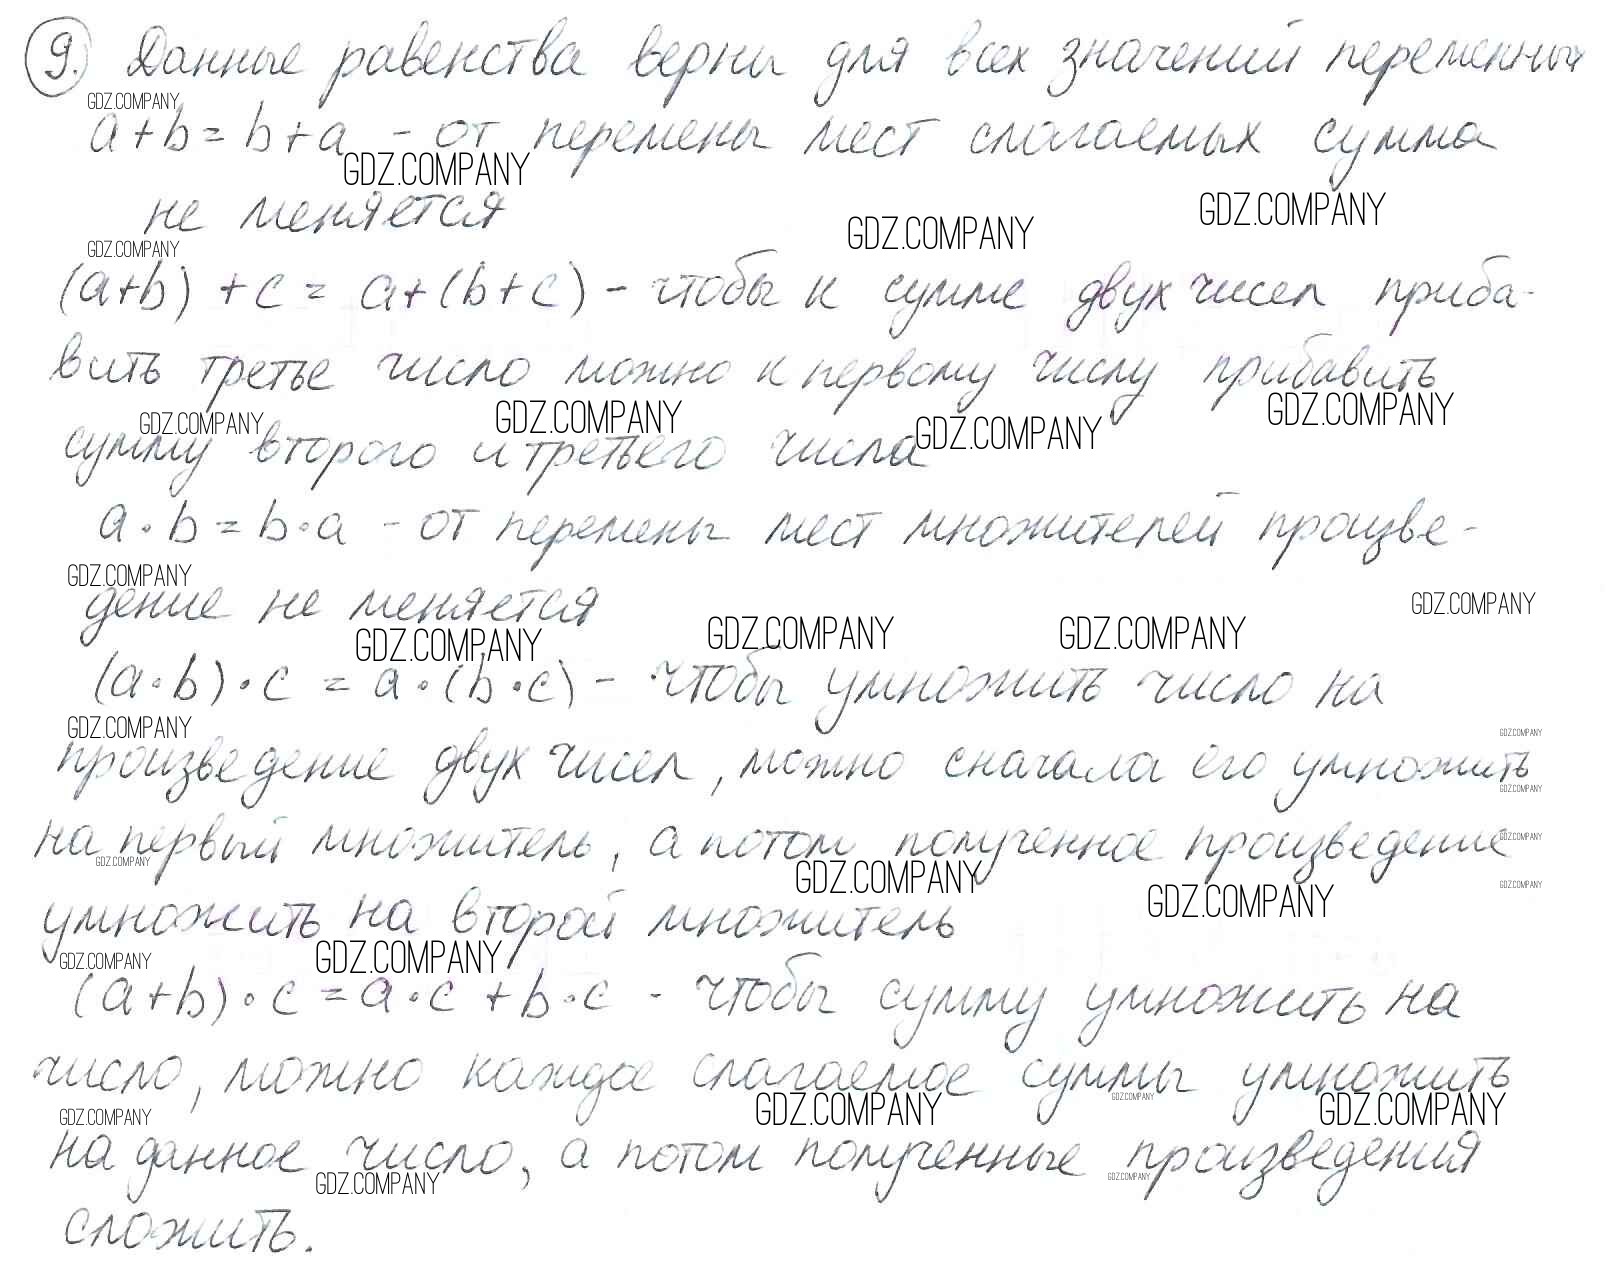 9. Данные равенства верны для всех значений переменных
GDZ.COMPANY
a + b = b + a – от перемены мест слагаемых сумма
GDZ.COMPANY
GDZ.COMPANY
не меняется
GDZ.COMPANY
GDZ.COMPANY
(a+b) + c = a + (b + c) – чтобы к сумме двух чисел приба-
вить третье число можно к первому числу прибавить
GDZ.COMPANY GDZ.COMPANY GDZ.COMPANY GDZ.COMPANY
сумму второго и третьего числа
a · b = b · a – от перемены мест множителей произве-
GDZ.COMPANY
дение не меняется
GDZ.COMPANY
GDZ.COMPANY GDZ.COMPANY GDZ.COMPANY
(a · b) · c = a · (b · c) – чтобы умножить число на
GDZ.COMPANY GDZ.COMPANY
произведение двух чисел, можно сначала его умножить
GDZ.COMPANY
на первый множитель, а потом полученное произведение
GDZ.COMPANY
GDZ.COMPANY GDZ.COMPANY GDZ.COMPANY GDZ.COMPANY
умножить на второй множитель
GDZ.COMPANY GDZ.COMPANY
(a + b) · c = a · c + b · c - чтобы сумму умножить на
число, можно каждое слагаемое суммы умножить
GDZ.COMPANY GDZ.COMPANY GDZ.COMPANY GDZ.COMPANY
на данное число, а потом полученные произведения
GDZ.COMPANY GDZ.COMPANY
сложить.